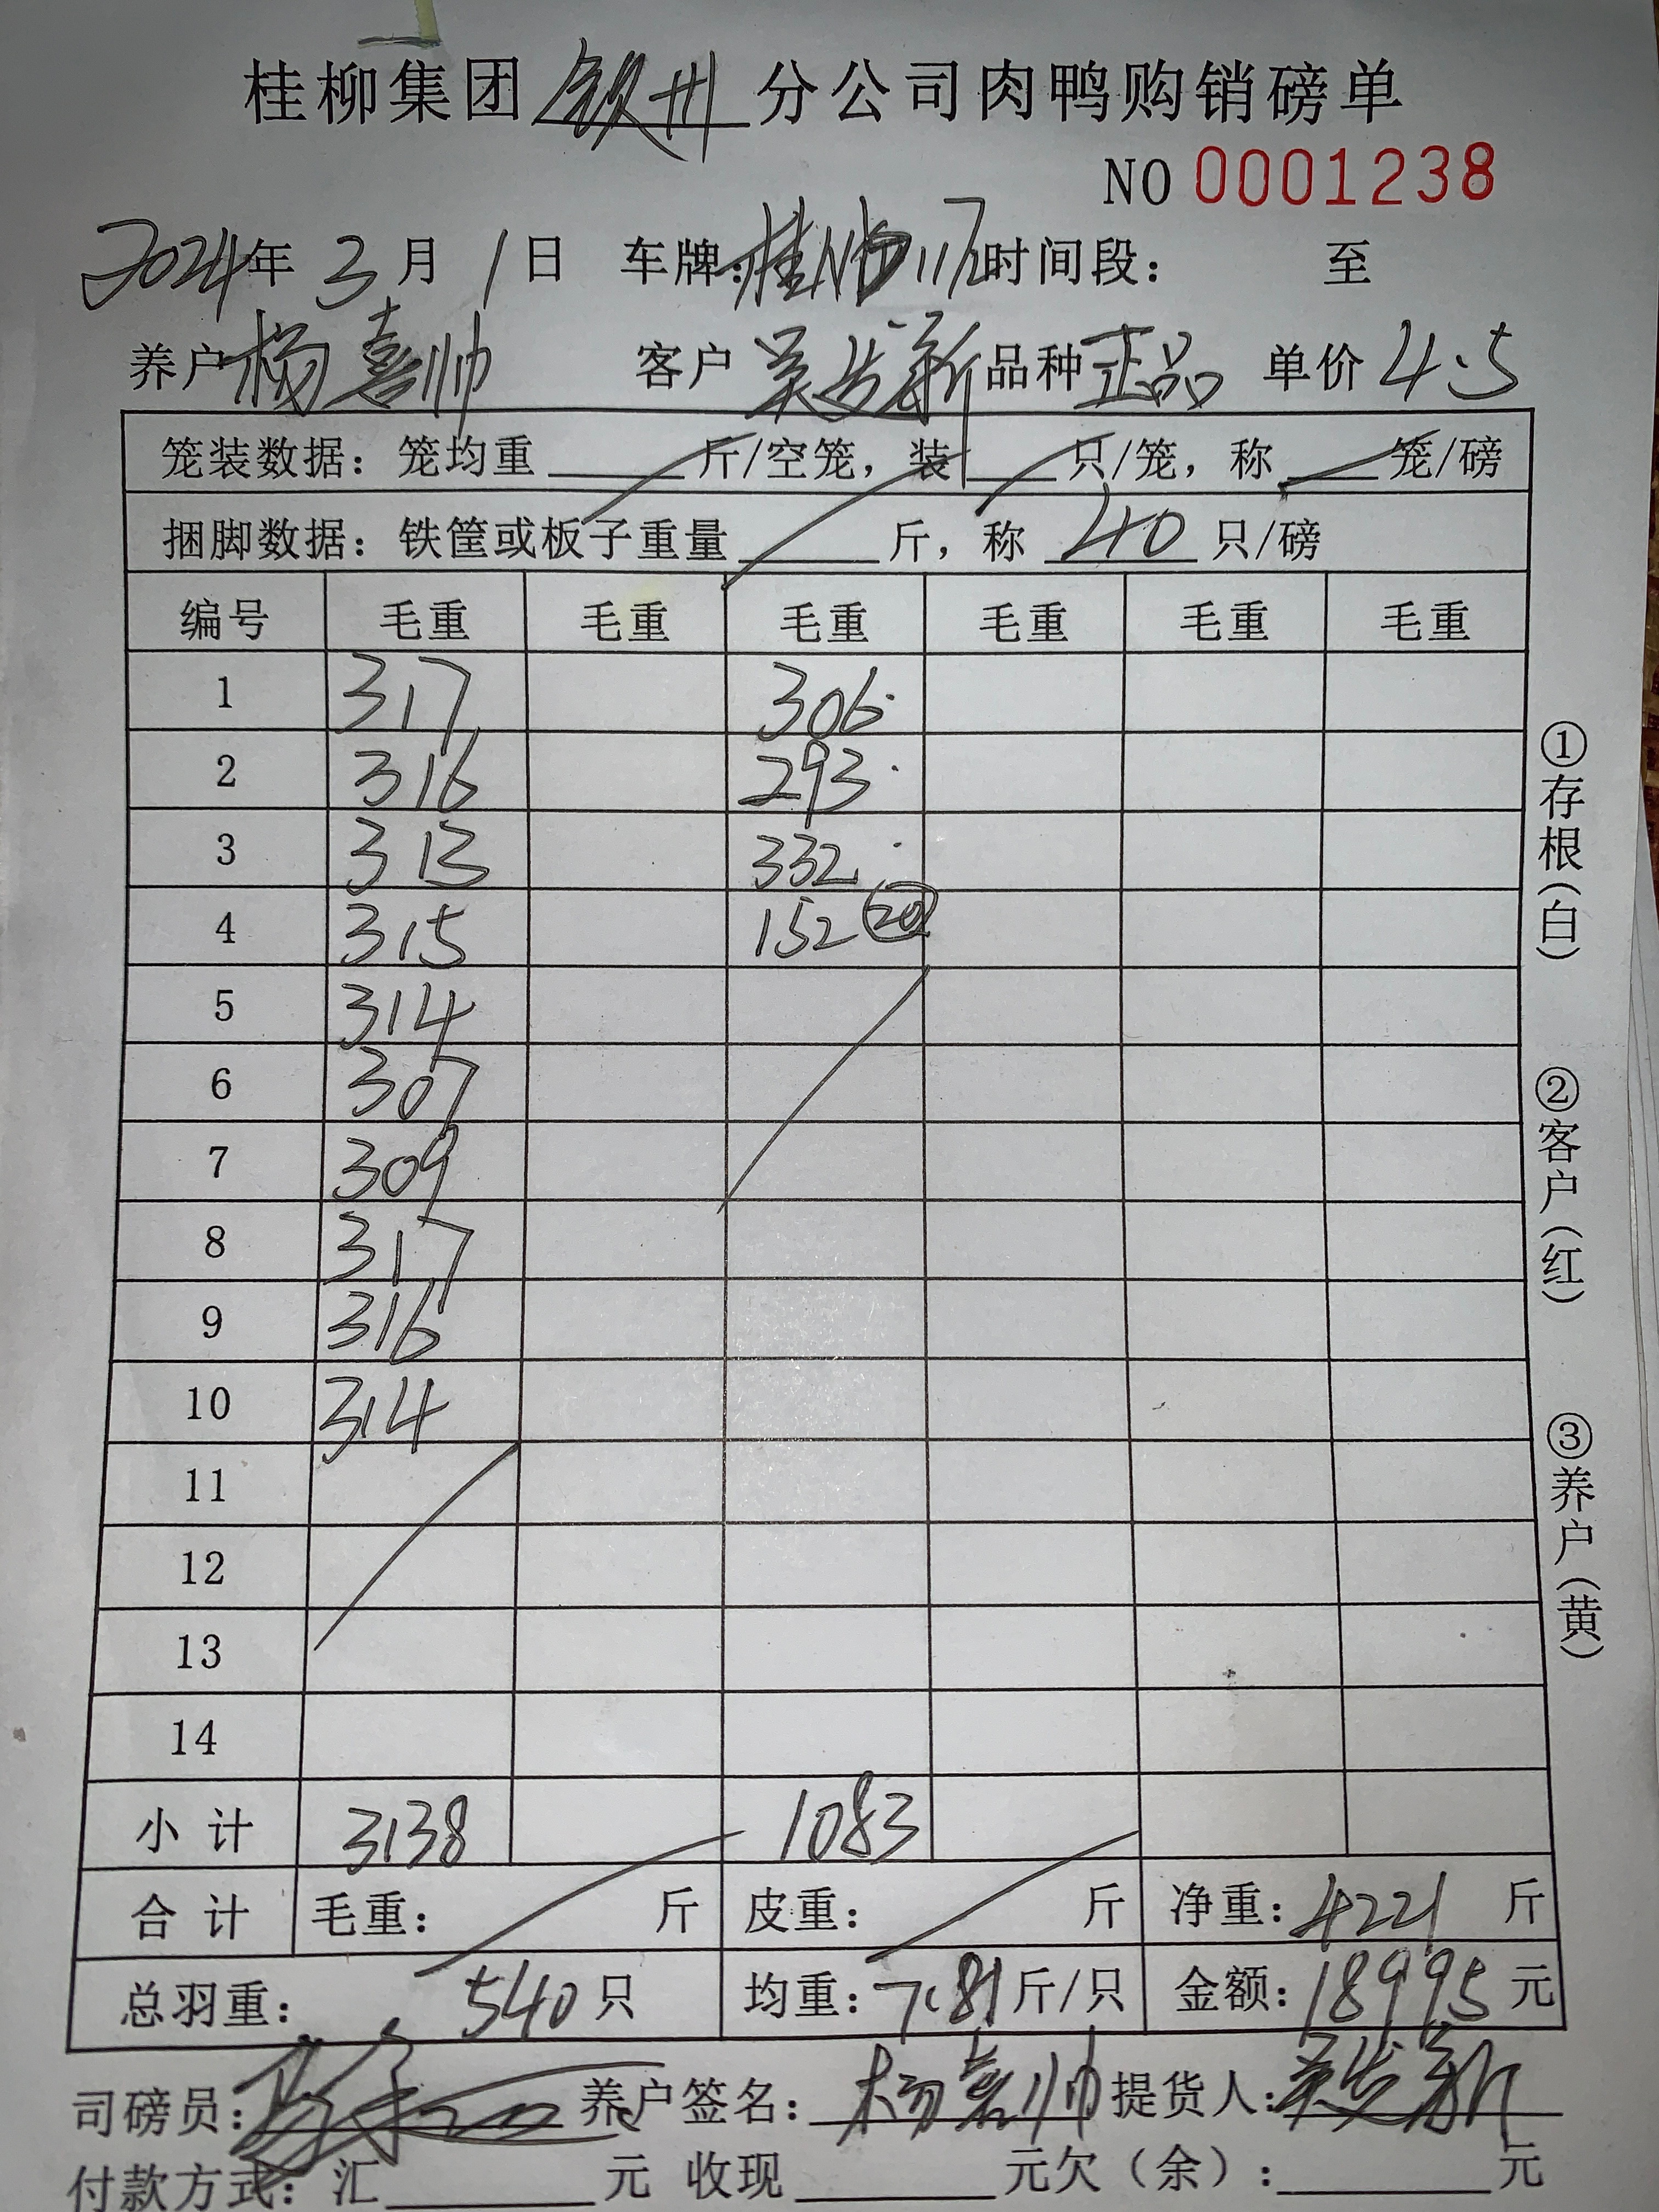 桂柳集团 钦州 分公司肉鸭购销磅单
NO 0001238
2024年 3月 1日 车牌：桂N 时间段： 至
养户 杨喜帅 客户 吴发新 品种 正品 单价 4.5
笼装数据：笼均重 斤/空笼，装 只/笼，称 笼/磅
捆脚数据：铁筐或板子重量 斤，称 40 只/磅
编号 毛重 毛重 毛重 毛重 毛重 毛重
1 317 306
2 316 293
3 313 332
4 315 152 20
5 314
6 307
7 309
8 317
9 316
10 314
11
12
13
14
小计 3138 1083
合计 毛重： 斤 皮重： 斤 净重：4221 斤
总羽重： 540只 均重：7.81斤/只 金额：18995 元
司磅员： 养户签名：杨喜帅 提货人：吴发新
付款方式：汇 元 收现 元欠（余）： 元
①存根（白）
②客户（红）
③养户（黄）